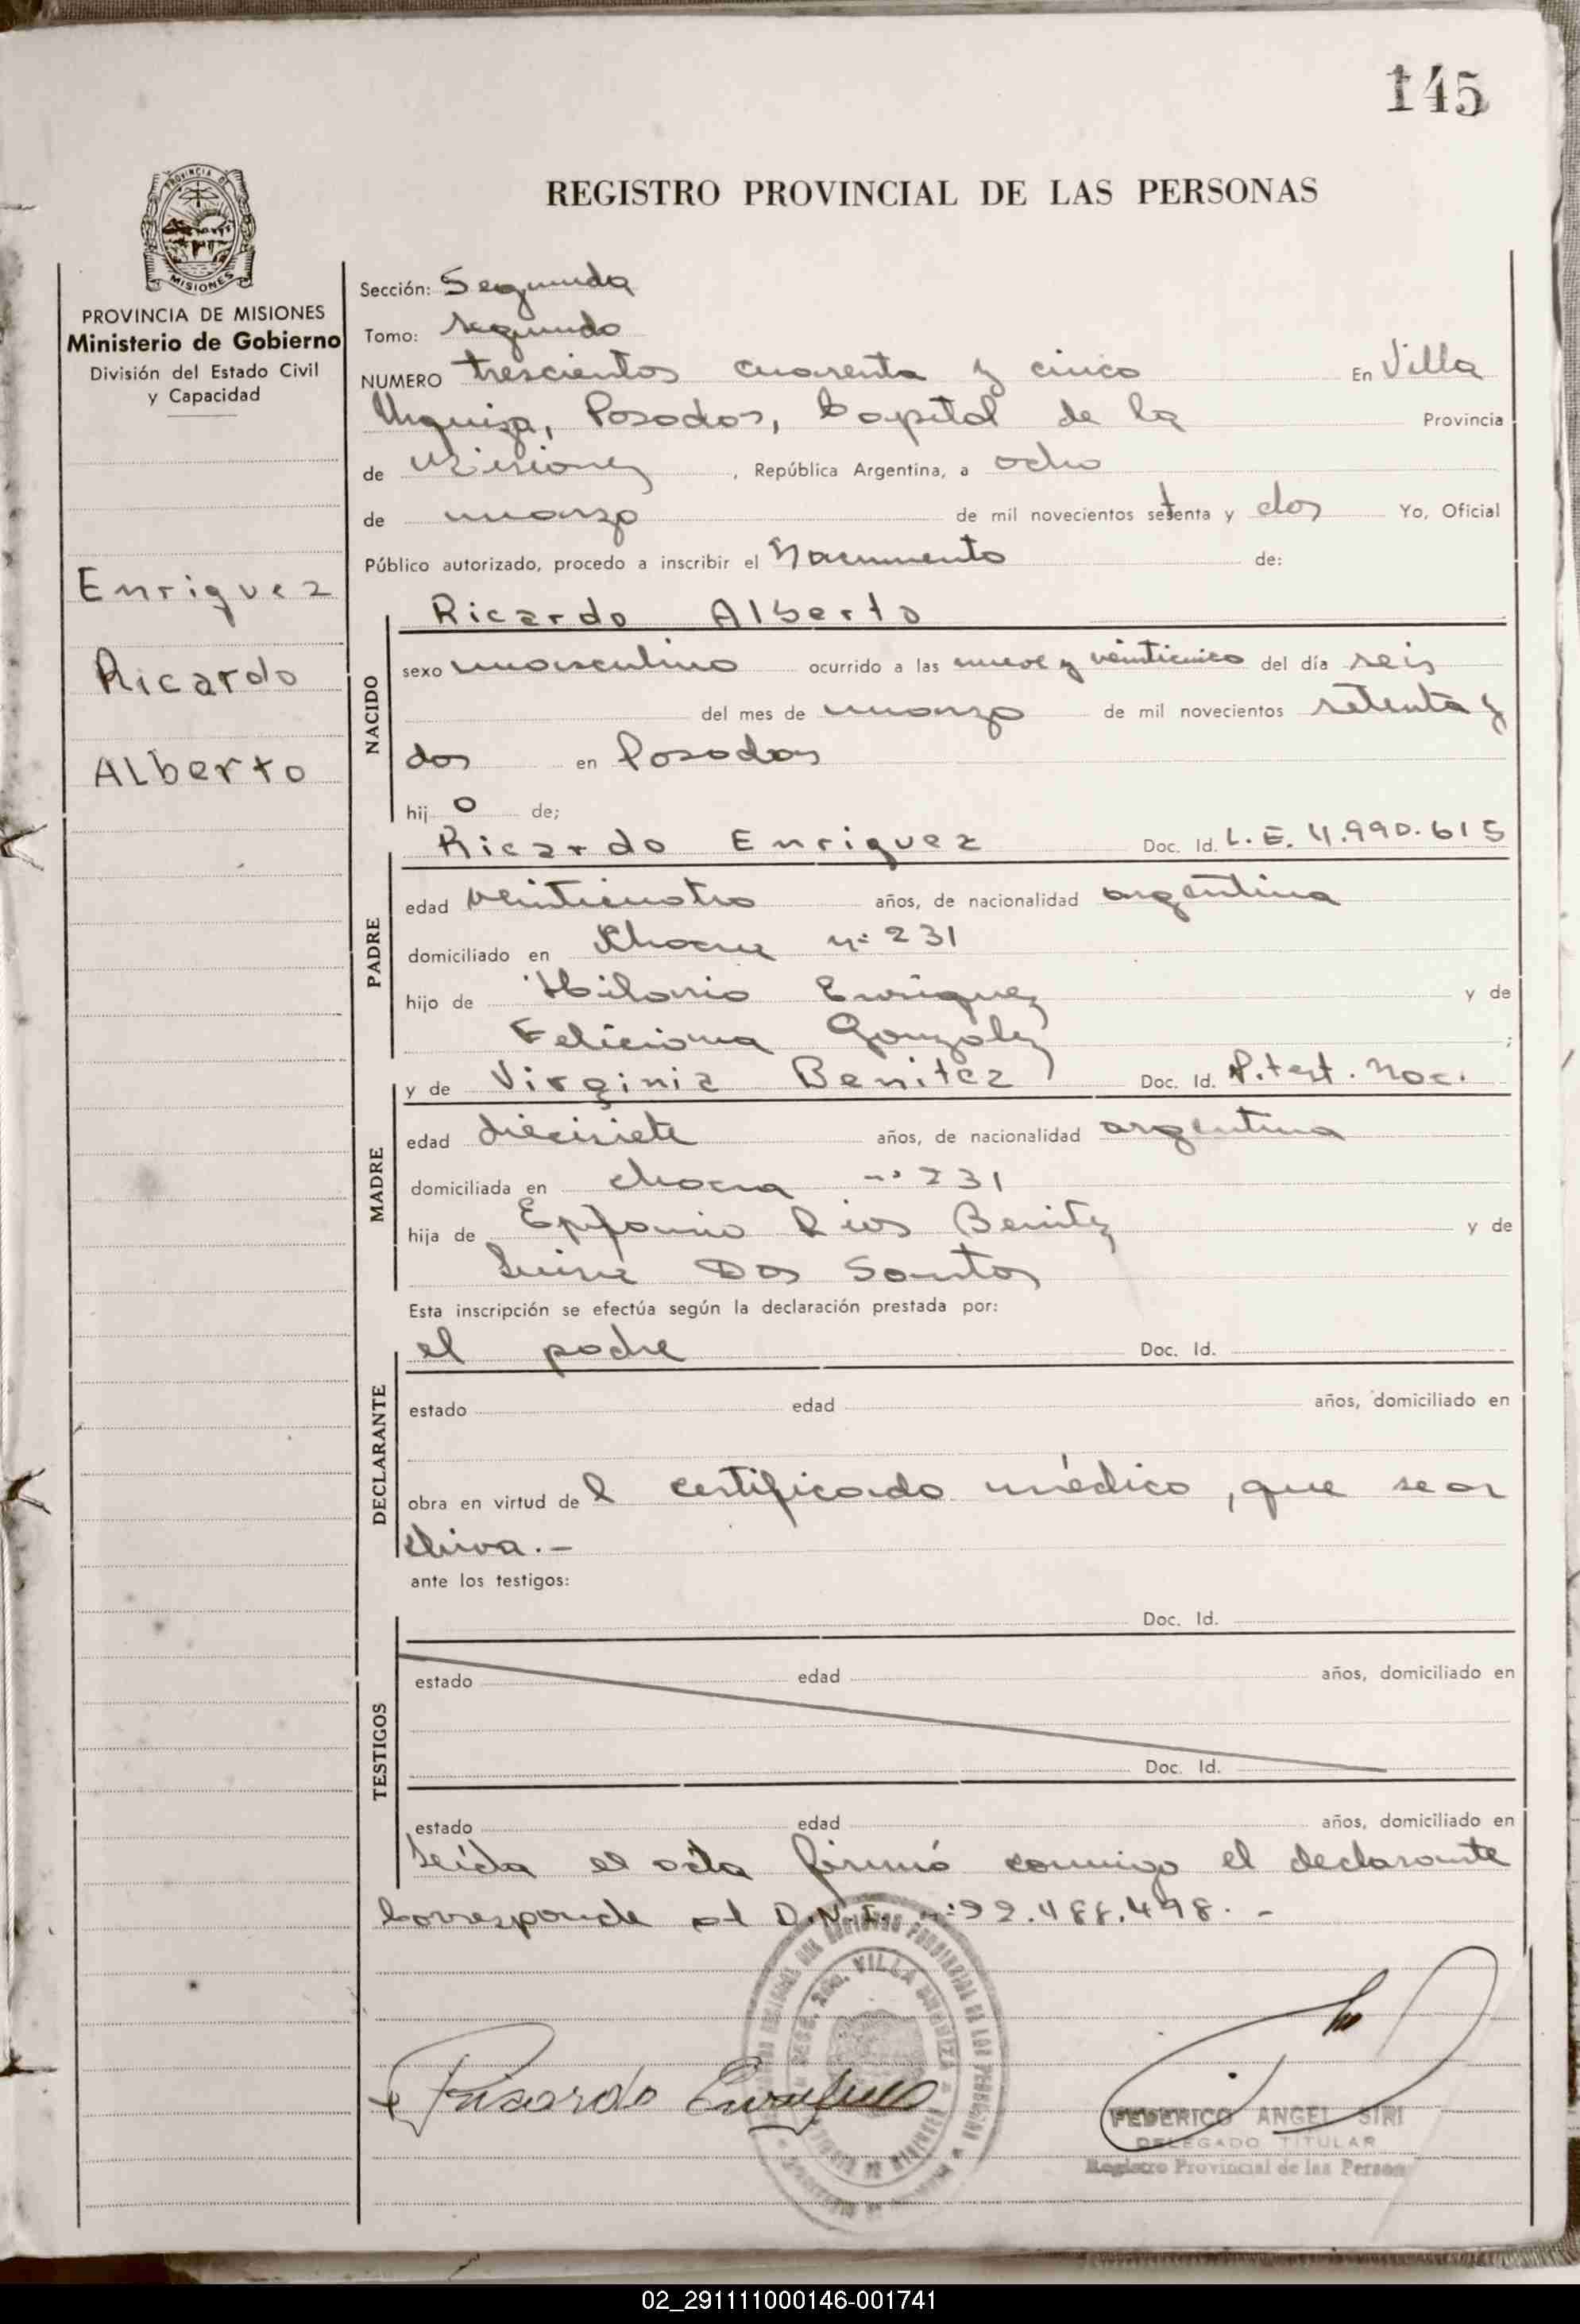 145
REGISTRO PROVINCIAL DE LAS PERSONAS
PROVINCIA DE
MISIONES
PROVINCIA DE MISIONES
Ministerio de Gobierno
División del Estado Civil
y Capacidad
Enriquez
Ricardo
ALberto
Sección: Segunda
Tomo: segundo
NUMERO trescientos cuarenta y cinco En Villa
Urquiza, Posadas, Capital de la Provincia
de Misiones, República Argentina, a ocho
de marzo de mil novecientos setenta y dos Yo, Oficial
Público autorizado, procedo a inscribir el Nacimiento de:
NACIDO
Ricardo Alberto
sexo masculino ocurrido a las nueve y veinticinco del día seis
del mes de marzo de mil novecientos setenta y
dos en Posadas
hijo de;
PADRE
Ricardo Enriquez Doc. Id. L.E. 4.990.615
edad veinticuatro años, de nacionalidad argentina
domiciliado en Chacra nº 231
hijo de Hilario Enriquez y de
Feliciana Gonzalez;
MADRE
y de Virginia Benitez Doc. Id. P. test. Nac.
edad diecisiete años, de nacionalidad argentina
domiciliada en chacra nº 231
hija de Epifanio Rios Benitez y de
Dos Santos
Esta inscripción se efectúa según la declaración prestada por:
DECLARANTE
el padre Doc. Id.
estado edad años, domiciliado en
obra en virtud del certificado médico, que se ar
chiva.-
ante los testigos:
TESTIGOS
Doc. Id.
estado edad años, domiciliado en
Doc. Id.
estado edad años, domiciliado en
Leída el acta firmó conmigo el declarante
Corresponde al D.N.I. nº 22.488.498.-
Ricardo Enriquez
VILLA URQUIZA
FEDERICO ANGEL SIRI
DELEGADO TITULAR
Registro Provincial de las Personas
02_291111000146-001741